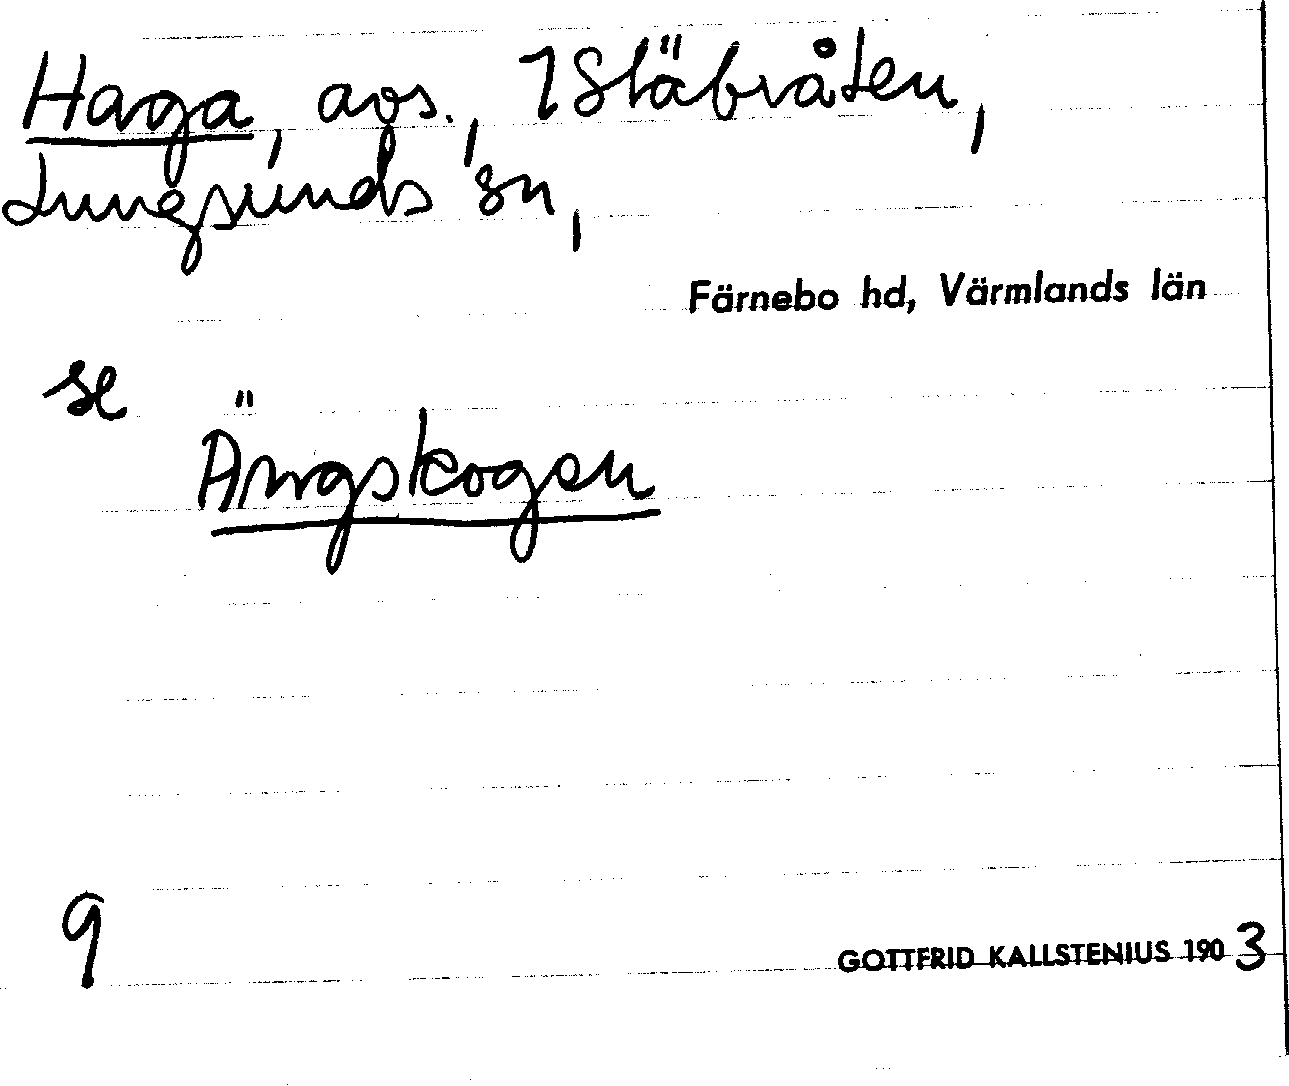 Haga, avs., 1 Stäbråten,
Lungsunds sn,
Färnebo hd, Värmlands län
se
Ängskogen
9
GOTTFRID KALLSTENIUS 1903